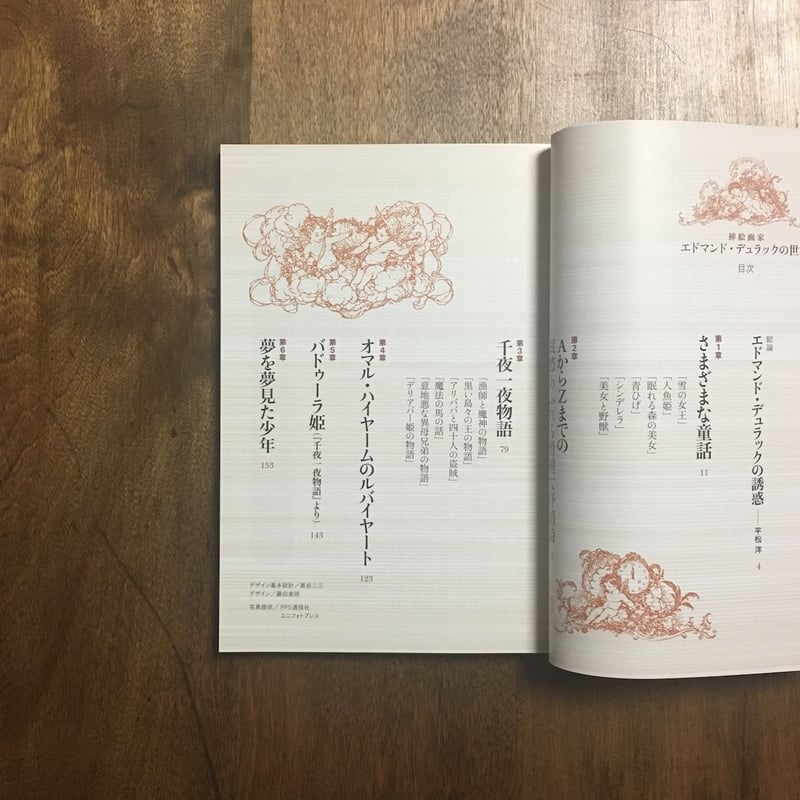 挿絵画家
エドマンド・デュラックの世
目次
総論
エドマンド・デュラックの誘惑——平松 洋 4
第1章
さまざまな童話 11
「雪の女王」
「人魚姫」
「眠れる森の美女」
「青ひげ」
「シンデレラ」
「美女と野獣」
第2章
AからZまでの
第3章
千夜一夜物語 79
「漁師と魔神の物語」
「黒い島々の王の物語」
「アリババと四十人の盗賊」
「魔法の馬の話」
「意地悪な異母兄弟の物語」
「デリアバー姫の物語」
第4章
オマル・ハイヤームのルバイヤート 123
第5章
バドゥーラ姫（『千夜一夜物語』より） 143
第6章
夢を夢見た少年 153
デザイン基本設計／黒岩二三
写真提供／PPS通信社
ユニフォトプレス